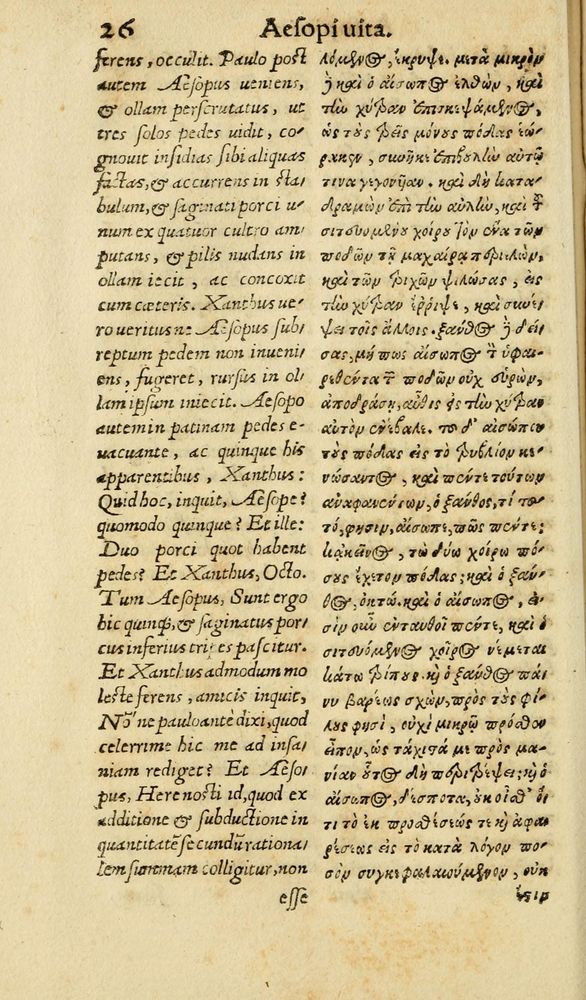 26 Aesopi uita.
ferens, occulit. Paulo post
autem Aesopus ueniens,
& ollam perscrutatus, ut
tres solos pedes uidit, co-
gnouit insidias sibi aliquas
factas, & accurrens in sta/
bulum, & saginati porci u-
num ex quatuor cultro am
putans, & pilis nudans in
ollam iecit, ac concoxit
cum cæteris. Xanthus ue/
ro ueritus ne Aesopus sub/
reptum pedem non inueni
ens, fugeret, rursus in ol/
lam ipsum iniecit. Aesopo
autem in patinam pedes e-
uacuante, ac quinque his
apparentibus, Xanthus:
Quid hoc, inquit, Aesope?
quomodo quinque? Et ille:
Duo porci quot habent
pedes? Et Xanthus, Octo.
Tum Aesopus, Sunt ergo
hic quinq;, & saginatus por/
cus inferius tri es pascitur.
Et Xanthus admodum mo
leste ferens, amicis inquit,
Nō ne paulo antè dixi, quod
celerrime hic me ad insa/
niam rediget? Et Aeso/
pus, Here nosti id, quod ex
additione & subductione in
quantitatē secundū rationa/
lem summam colligitur, non
esse
λόμενος, ἔκρυψε. μετὰ μικρὸν
ἢ καὶ ὁ αἴσωπος ἐλθὼν, καὶ
τὴν χύτραν ἐπισκεψάμενος,
ὡς τοὺς τρεῖς μόνους πόδας ἑώ-
ρακεν, συνῆκε ἐπιβουλὴν αὐτῷ
τινα γεγονῆσαν. καὶ δὴ κατα-
δραμὼν ἐπὶ τὴν αὐλὴν, καὶ τοῦ
σιτευομένου χοίρου τὸν ἕνα τῶν
ποδῶν τῇ μαχαίρᾳ περιελὼν,
καὶ τῶν τριχῶν ψιλώσας, εἰς
τὴν χύτραν ἔρριψε, καὶ συνέ-
ψει τοῖς ἄλλοις. ξανθὸς ἢ δεί-
σας, μή πως αἴσωπος τ ὑφαι-
ρεθέντα τ ποδῶν οὐχ εὑρὼν,
ἀποδράσῃ, αὖθις εἰς τὴν χύτραν
αὐτὸν ἐνέβαλε. τοῦ δ' αἰσώπου
τοὺς πόδας εἰς τὸ τρυβλίον κε-
νώσαντος, καὶ πέντε τούτων
ἀναφανέντων, ὁ ξανθὸς, τί τοῦ-
το, φησιν, αἴσωπε, πῶς πέντε;
κἀκεῖνος, τὼ δύω χοίρω πό-
σους ἔχετον πόδας; καὶ ὁ ξαν-
θὸς, ὀκτώ. καὶ ὁ αἴσωπος, εἰ-
σὶν οὖν ἐνταυθοῖ πέντε, καὶ ὁ
σιτευόμενος χοῖρος νέμεται
κάτω τρίπους. καὶ ὁ ξανθὸς πά-
νυ βαρέως σχὼν, πρὸς τοὺς φί-
λους φησὶ, οὐχὶ μικρῷ πρόσθεν
εἶπον, ὡς τάχιστά με πρὸς μα-
νίαν οὗτος δὴ περιτρέψει; καὶ ὁ
αἴσωπος, δέσποτα, οὐκ οἶσθ' ὅ-
τι τὸ ἐκ προσθέσεώς τε καὶ ἀφαι-
ρέσεως εἰς τὸ κατὰ λόγον πο-
σὸν συγκεφαλαιούμενον, οὐκ
ἔστιν